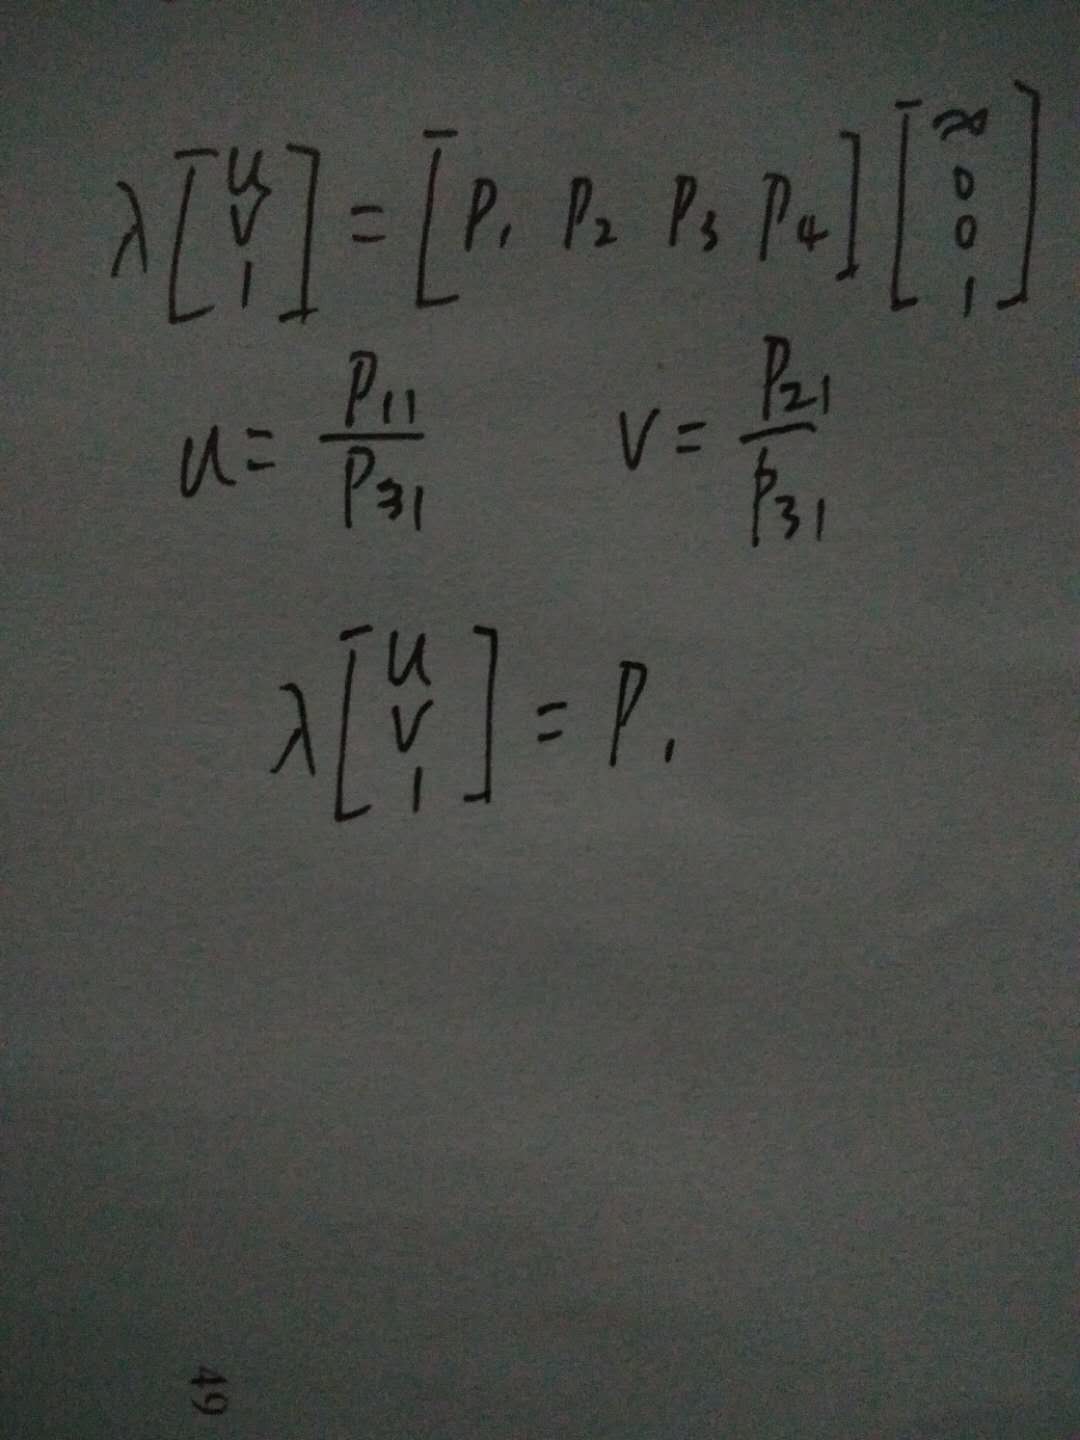 λ[u v 1] = [P₁ P₂ P₃ P₄][∞ 0 0 1]
u = P₁₁/P₃₁ v = P₂₁/P₃₁
λ[u v 1] = P₁
49